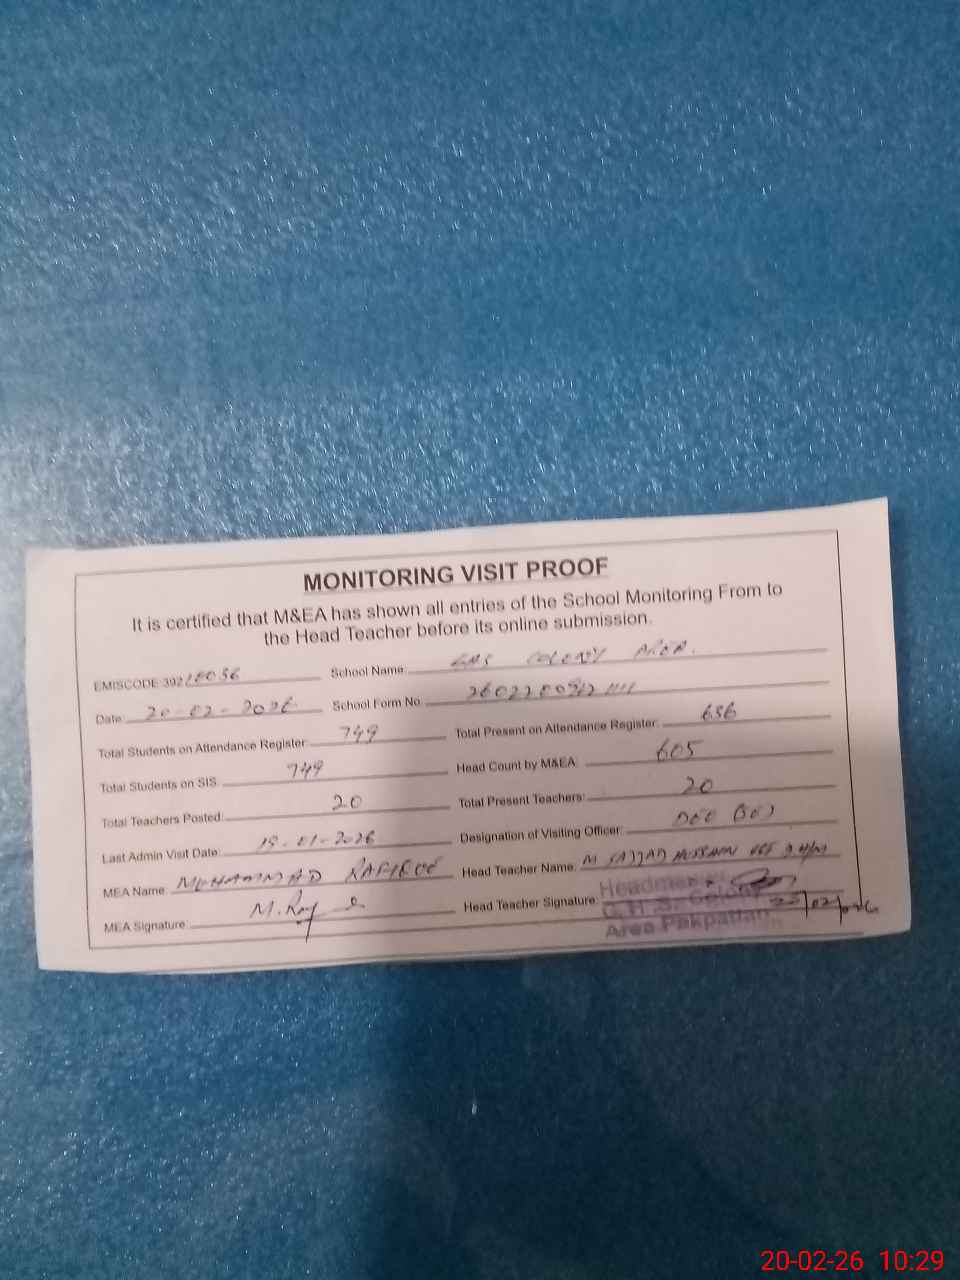 MONITORING VISIT PROOF
It is certified that M&EA has shown all entries of the School Monitoring From to
the Head Teacher before its online submission.
EMISCODE 392 School Name: COLONY AREA.
Date: 20-02-2026 School Form No.
Total Students on Attendance Register: 749 Total Present on Attendance Register: 656
Total Students on SIS: 749 Head Count by M&EA: 605
Total Teachers Posted: 20 Total Present Teachers: 20
Last Admin Visit Date: 19-01-2026 Designation of Visiting Officer:
MEA Name: MUHAMMAD Head Teacher Name: M SAJJAD HUSSAIN
MEA Signature: Head Teacher Signature:
Area Pakpattan
20-02-26 10:29